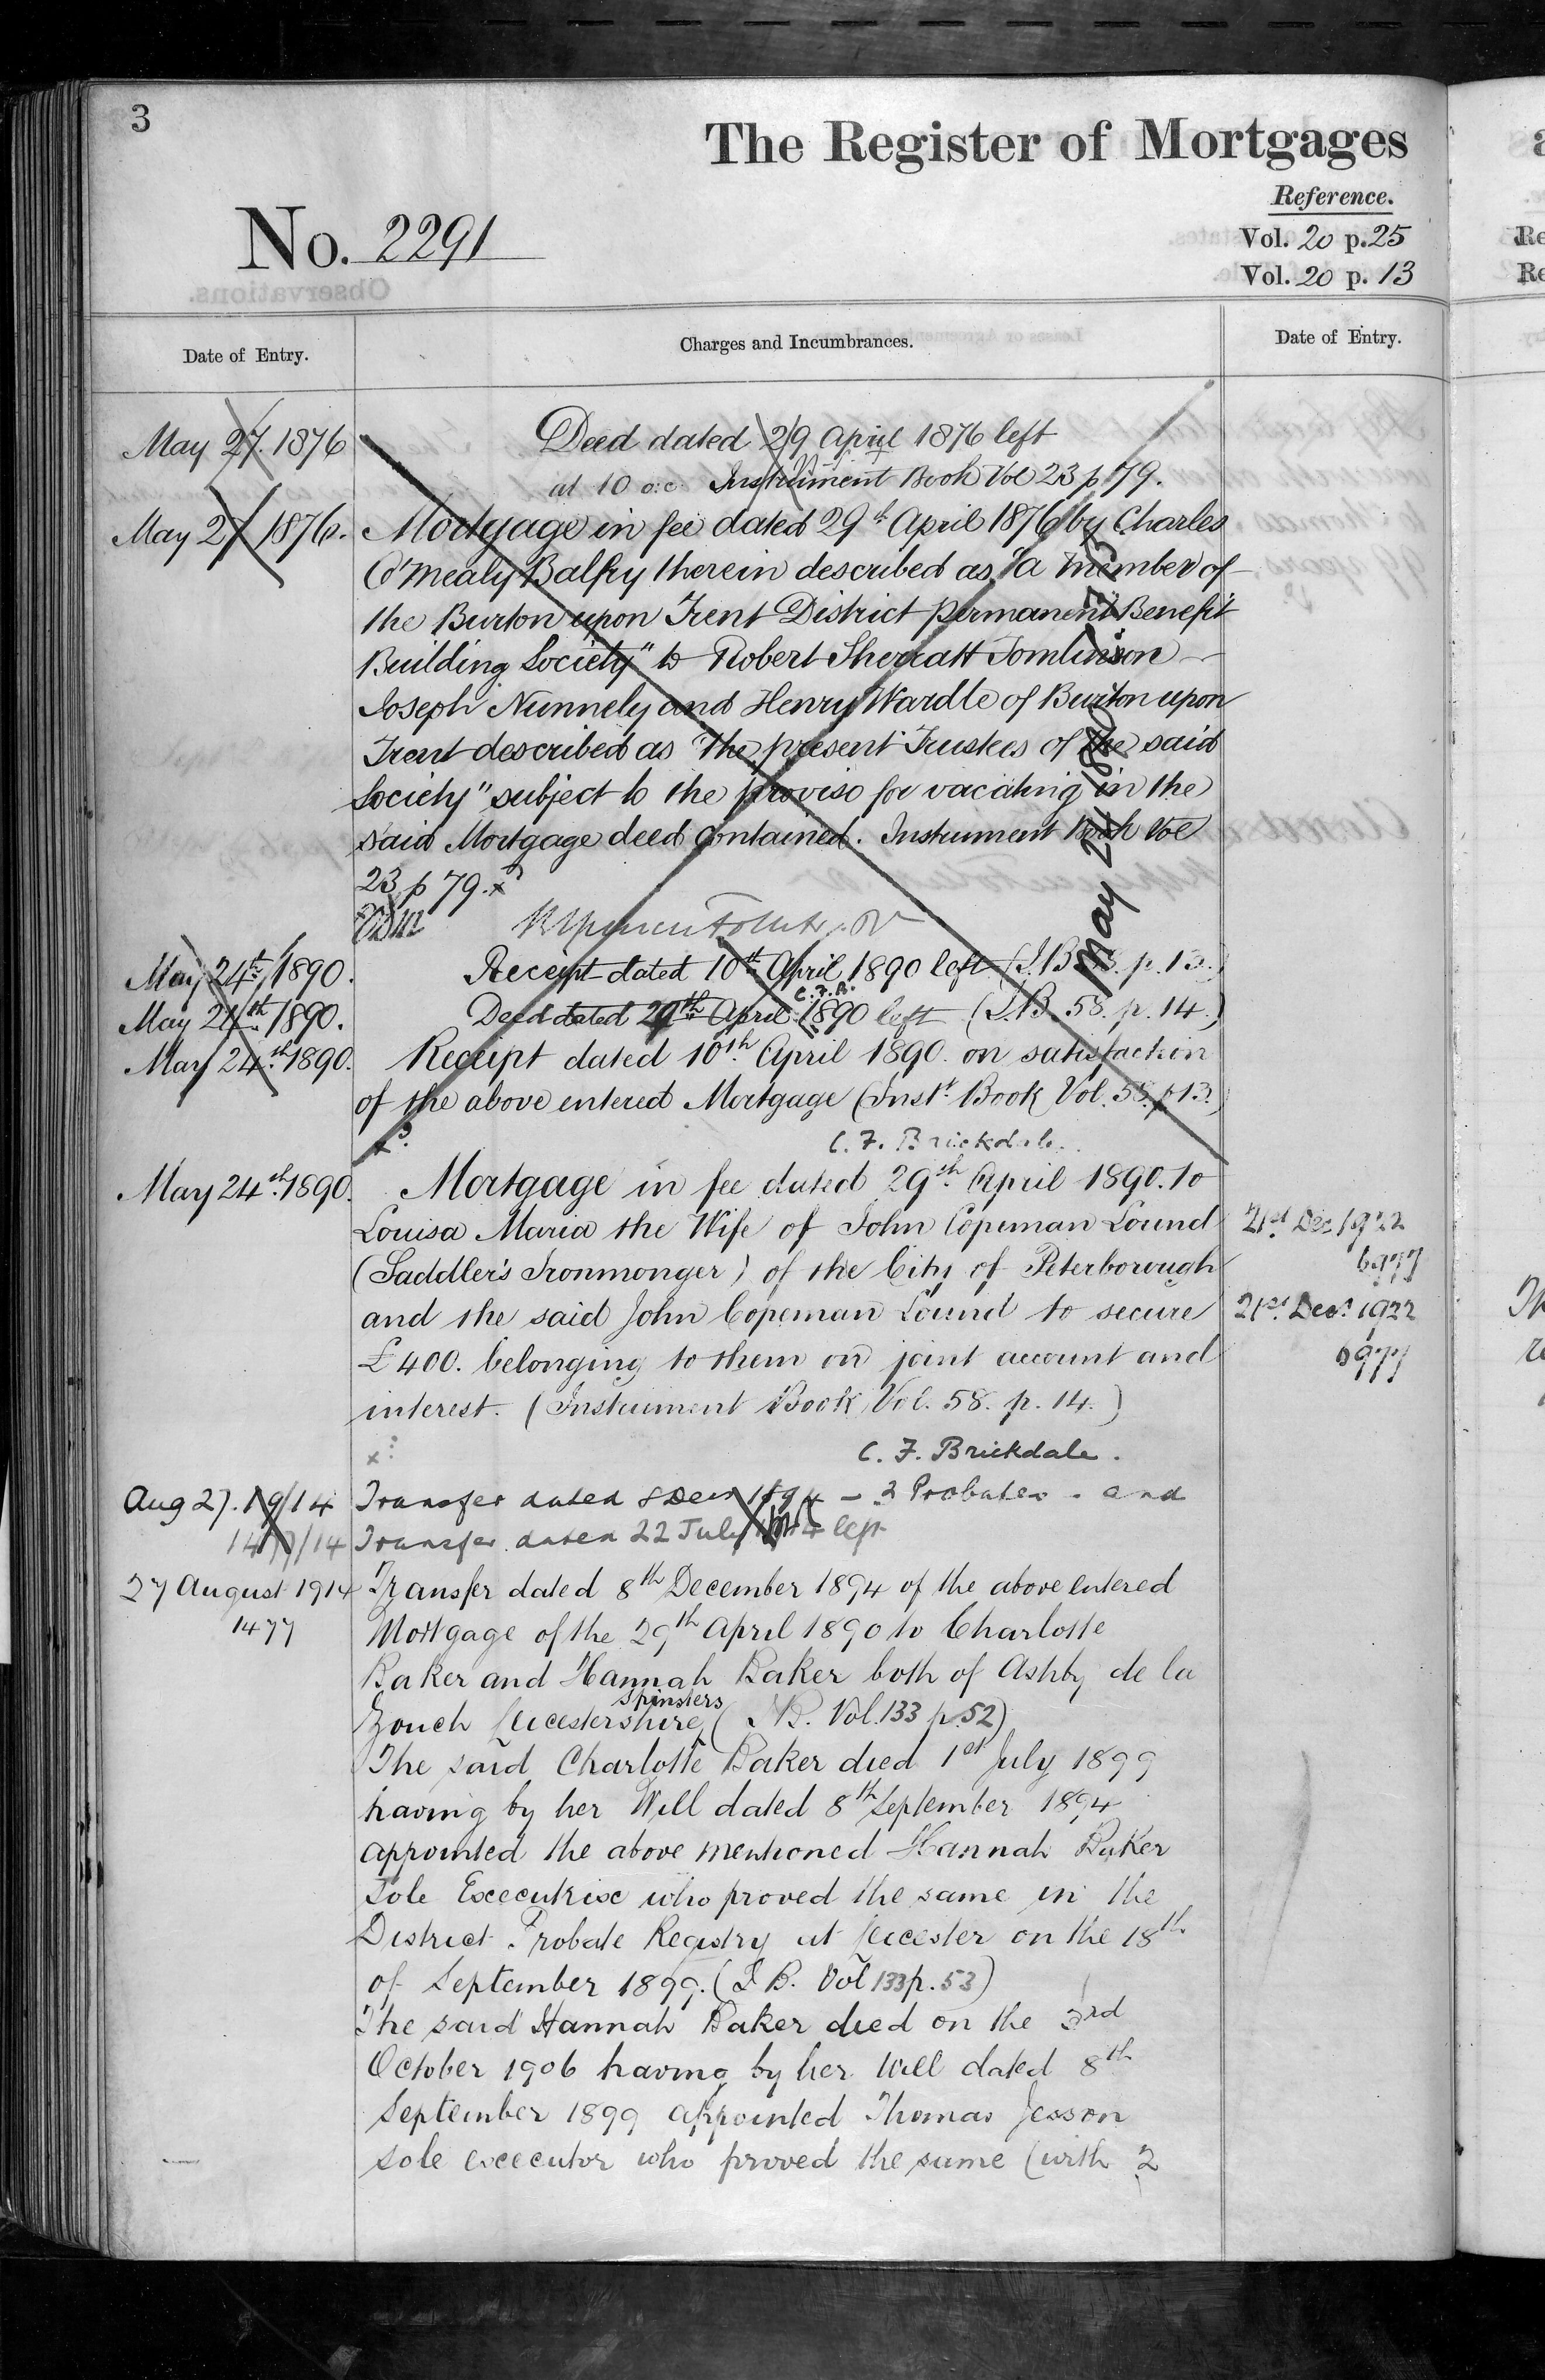 3
The Register of Mortgages
Reference.
No. 2291
Vol. 20 p. 25
Vol. 20 p. 13
Date of Entry.
Charges and Incumbrances.
Date of Entry.
May 27. 1876
Deed dated 29 April 1876 left
at 10 o.c. Instrument Book Vol 23 p 79.
May 27 1876.
Mortgage in fee dated 29th April 1876 by Charles
O'Mealy Balfry therein described as "a member of
the Burton upon Trent District Permanent Benefit
Building Society" to Robert Sherratt Tomlinson
Joseph Nunnely and Henry Wardle of Burton upon
Trent described as "the present Trustees of the said
Society" subject to the proviso for vacating in the
said Mortgage deed contained. Instrument Book Vol
23 p 79. x
May 24 1890
May 24th 1890.
Receipt dated 10th April 1890 left (I.B. 58. p. 13.)
C.F.B.
May 24th 1890.
Deed dated 29th April 1890 left (I.B. 58. p. 14.)
May 24th 1890.
Receipt dated 10th April 1890. on satisfaction
of the above entered Mortgage (Inst. Book Vol. 58. p 13.)
C. F. Brickdale.
May 24th 1890.
Mortgage in fee dated 29th April 1890. to
Louisa Maria the Wife of John Copeman Lound
(Saddler's Ironmonger) of the City of Peterborough
and the said John Copeman Lound to secure
£400. belonging to them on joint account and
interest. (Instrument Book Vol. 58. p. 14.)
21st Dec 1922
6977
21st Decr 1922
6977
C. F. Brickdale.
Aug 27. 19/14
Transfer dated 8 Decr 1894 – 2 Probates – and
1477/14
Transfer dated 22 July 1914 left
27 August 1914
1477
Transfer dated 8th December 1894 of the above entered
Mortgage of the 29th April 1890 to Charlotte
Baker and Hannah Baker both of Ashby de la
Zouch Leicestershire spinsters (I.B. Vol. 133 p. 52)
The said Charlotte Baker died 1st July 1899
having by her Will dated 8th September 1894
appointed the above mentioned Hannah Baker
sole Executrix who proved the same in the
District Probate Registry at Leicester on the 18th
of September 1899. (I.B. Vol 133 p. 53)
The said Hannah Baker died on the 3rd
October 1906 having by her Will dated 8th
September 1899 appointed Thomas Jesson
sole executor who proved the same (with 2